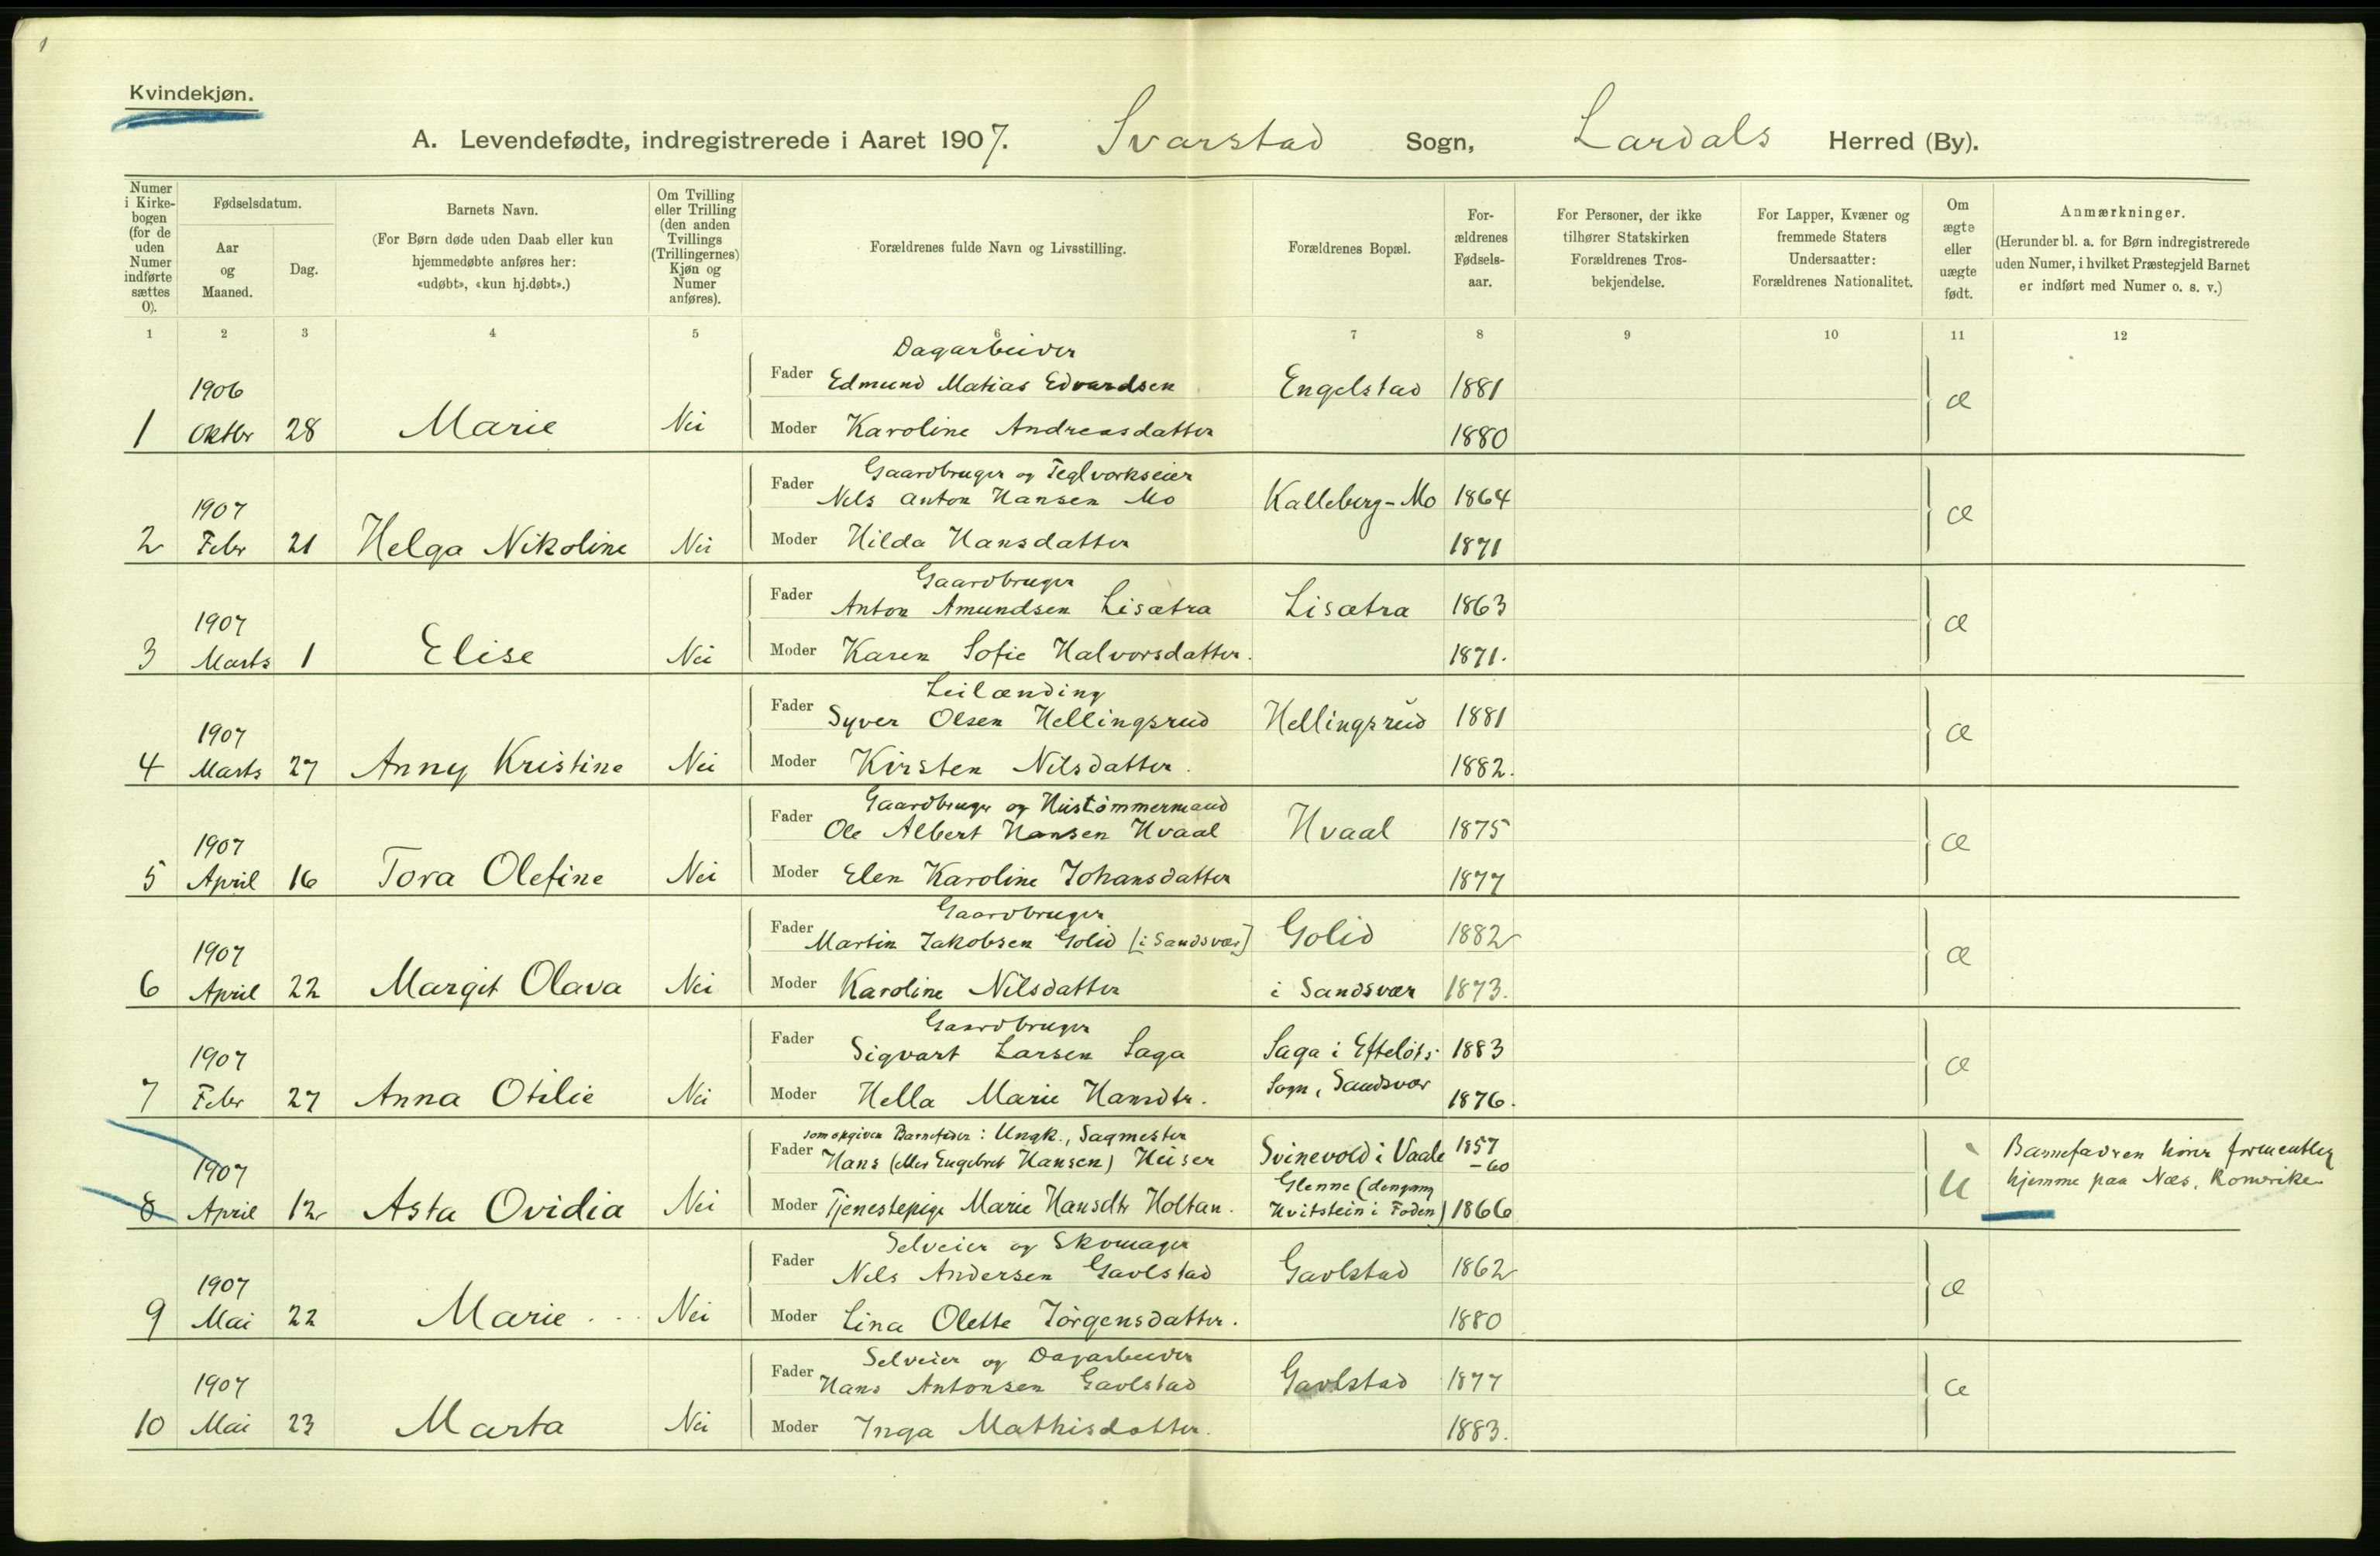 1
Kvindekjøn.
A. Levendefødte, indregistrerede i Aaret 1907. Svarstad Sogn, Lardals Herred (By).
Numer i Kirkebogen (for de uden Numer indførte sættes 0).
Fødselsdatum.
Aar og Maaned.
Dag.
Barnets Navn.
(For Børn døde uden Daab eller kun hjemmedøbte anføres her: «udøbt», «kun hj.døbt».)
Om Tvilling eller Trilling (den anden Tvillings (Trillingernes) Kjøn og Numer anføres).
Forældrenes fulde Navn og Livsstilling.
Forældrenes Bopæl.
Forældrenes Fødselsaar.
For Personer, der ikke tilhører Statskirken Forældrenes Trosbekjendelse.
For Lapper, Kvæner og fremmede Staters Undersaatter: Forældrenes Nationalitet.
Om ægte eller uægte født.
Anmærkninger.
(Herunder bl. a. for Børn indregistrerede uden Numer, i hvilket Præstegjeld Barnet er indført med Numer o. s. v.)
1 2 3 4 5 6 7 8 9 10 11 12
Dagarbeider
1906 Fader Edmund Matias Edvardsen Engelstad 1881 æ
1 Oktbr 28 Marie Nei Moder Karoline Andreasdatter 1880
Gaardbruger og Teglverkseier
1907 Fader Nels Anton Hansen Mo Kalleberg-Mo 1864 æ
2 Febr 21 Helga Nikoline Nei Moder Hilda Hansdatter 1871
Gaardbruger
1907 Fader Anton Amundsen Lisætra Lisætra 1863 æ
3 Marts 1 Elise Nei Moder Karen Sofie Halvorsdatter. 1871.
Leilænding
1907 Fader Syver Olsen Hellingsrud Hellingsrud 1881 æ
4 Marts 27 Anny Kristine Nei Moder Kirsten Nilsdatter. 1882.
Gaardbruger og Hustømmermand
1907 Fader Ole Albert Hansen Hvaal Hvaal 1875 æ
5 April 16 Tora Olefine Nei Moder Elen Karoline Johansdatter 1877
Gaardbruger
1907 Fader Martin Jakobsen Golid [i Sandsvær] Golid 1882 æ
6 April 22 Margit Olava Nei Moder Karoline Nilsdatter i Sandsvær 1873.
Gaardbruger
1907 Fader Sigvart Larsen Saga Saga i Efteløts 1883 æ
7 Febr 27 Anna Otilie Nei Moder Hella Marie Hansdtr. Sogn, Sandsvær 1876.
som opgiven Barnefader: Ungk., Sagmester
1907 Fader Hans (eller Engebret Hansen) Heiser Svinevold i Vaale 1857-60 Barnefadren hører formentlig
8 April 12 Asta Ovidia Nei Moder Tjenestepige Marie Hansdtr Holtan. Glenne (dengang Hvitstein i Foden) 1866 u hjemme paa Næs, Romerike
Selveier og Skomager
1907 Fader Nels Andersen Gavlstad Gavlstad 1862 æ
9 Mai 22 Marie Nei Moder Lina Olette Jørgensdatter. 1880
Selveier og Dagarbeider
1907 Fader Hans Antonsen Gavlstad Gavlstad 1877 æ
10 Mai 23 Marta Nei Moder Inga Mathisdatter. 1883.